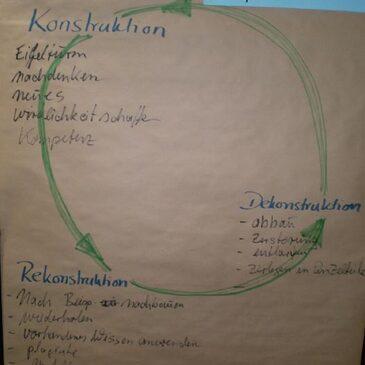 Konstruktion
Eifelturm
nachdenken
neues
Wirklichkeit schaffe
Kompetenz
Dekonstruktion
- abbau
- Zerstörung
- entlarven
- Zerlegen in Einzelteile
Rekonstruktion
- Nach Bsp. nachbauen
- wiederholen
- vorhandenes Wissen anwenden
- plagiate